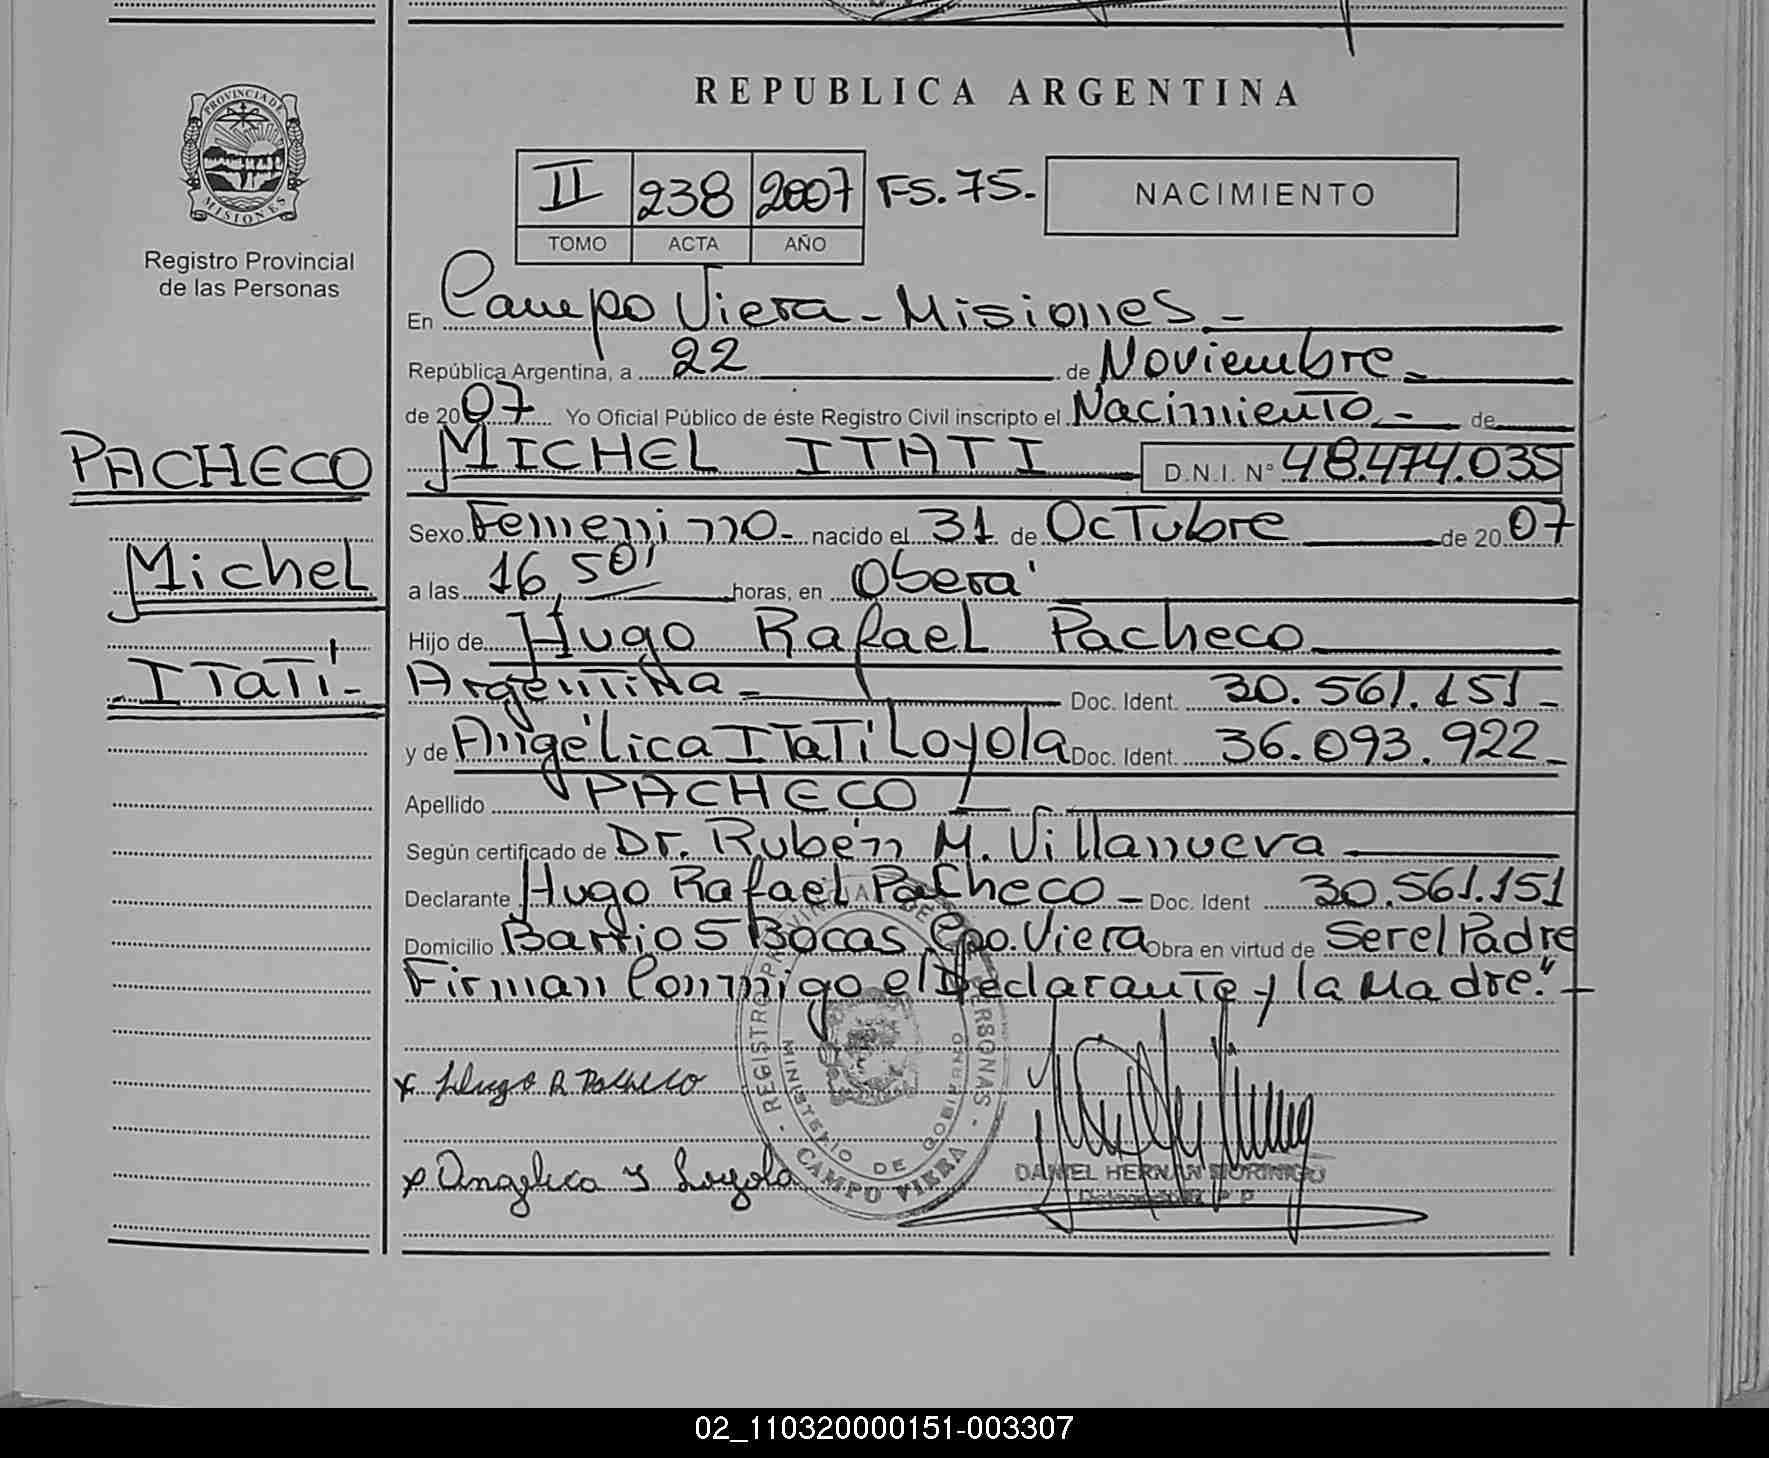 REPUBLICA ARGENTINA
PROVINCIA DE MISIONES
Registro Provincial
de las Personas
II 238 2007 FS. 75.-
TOMO ACTA AÑO
NACIMIENTO
En Campo Viera - Misiones -
República Argentina, a 22 de Noviembre -
de 2007 Yo Oficial Público de éste Registro Civil inscripto el Nacimiento - de
MICHEL ITATI D.N.I. N° 48.474.035
PACHECO
Michel
ITaTí-
Sexo Femenino- nacido el 31 de OcTubre de 2007
a las 16,50' horas, en Oberá
Hijo de Hugo Rafael Pacheco
ArgenTiNa - Doc. Ident. 30.561.151-
y de Angélica ITaTí Loyola Doc. Ident. 36.093.922-
Apellido PACHECO -
Según certificado de Dr. Rubén M. Villanueva
Declarante Hugo Rafael Pacheco - Doc. Ident 30.561.151
Domicilio Barrio 5 Bocas Cpo. Viera Obra en virtud de Ser el Padre
Firman Conmigo el Declarante y la Madre."-
x Hugo R Pacheco
x Angelica Y Loyola
REGISTRO PROVINCIAL DE PERSONAS
MINISTERIO DE GOBIERNO
- CAMPO VIERA -
DANIEL HERNAN MORINIGO
02_110320000151-003307